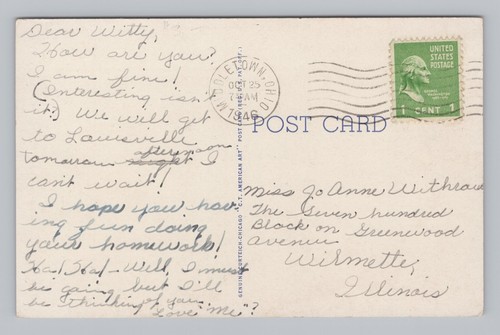 Dear Witty,
How are you?
I am fine!
(Interesting isn't
it.) We will get
to Louisville
tomorrow afternoon I
can't wait!
I hope you hav-
ing fun doing
your homework!
Ha-! Ha! - Well, I must
be going but I'll
be thinking of you
Love "Me"?
GENUINE CURTEICH-CHICAGO "C.T. AMERICAN ART" POST CARD
MIDDLETOWN, OHIO
OCT 25
7 AM
1946
UNITED
STATES
POSTAGE
1 CENT 1
POST CARD
Miss Jo Anne Withrow
The Seven hundred
Block on Greenwood
avenue
Wilmette,
Illinois